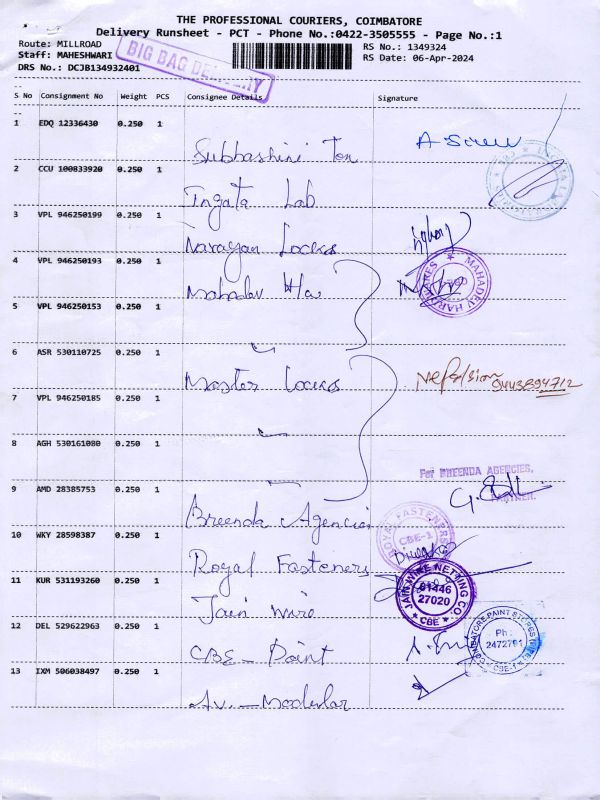 THE PROFESSIONAL COURIERS, COIMBATORE
Delivery Runsheet - PCT - Phone No.:0422-3505555 - Page No.:1
Route: MILLROAD
RS No.: 1349324
Staff: MAHESHWARI
RS Date: 06-Apr-2024
DRS No.: DCJB134932401
BIG BAG DELIVERY
S No Consignment No Weight PCS Consignee Details Signature
1 EDQ 12336430 0.250 1
Subhashini Tex
2 CCU 100833920 0.250 1
Lab
3 VPL 946250199 0.250 1
Narayan Lockes
4 VPL 946250193 0.250 1
Mahadev Har
MAHADEV HARDWARES
5 VPL 946250153 0.250 1
6 ASR 530110725 0.250 1
Master Lockes
7 VPL 946250185 0.250 1
8 AGH 530161080 0.250 1
For BHEENDA AGENCIES,
PARTNER.
9 AMD 28385753 0.250 1
Breenda Agencies
ROYAL FASTENERS
CBE-1
10 WKY 28598387 0.250 1
Royal Fasteners
11 KUR 531193260 0.250 1
Jain Wire
JAIN WIRE NETTING CO.
81446
27020
CBE
12 DEL 529622963 0.250 1
CBE - Paint
COIMBATORE PAINT STORES
Ph :
2472791
CBE-1
13 IXM 506038497 0.250 1
Av. - Modular